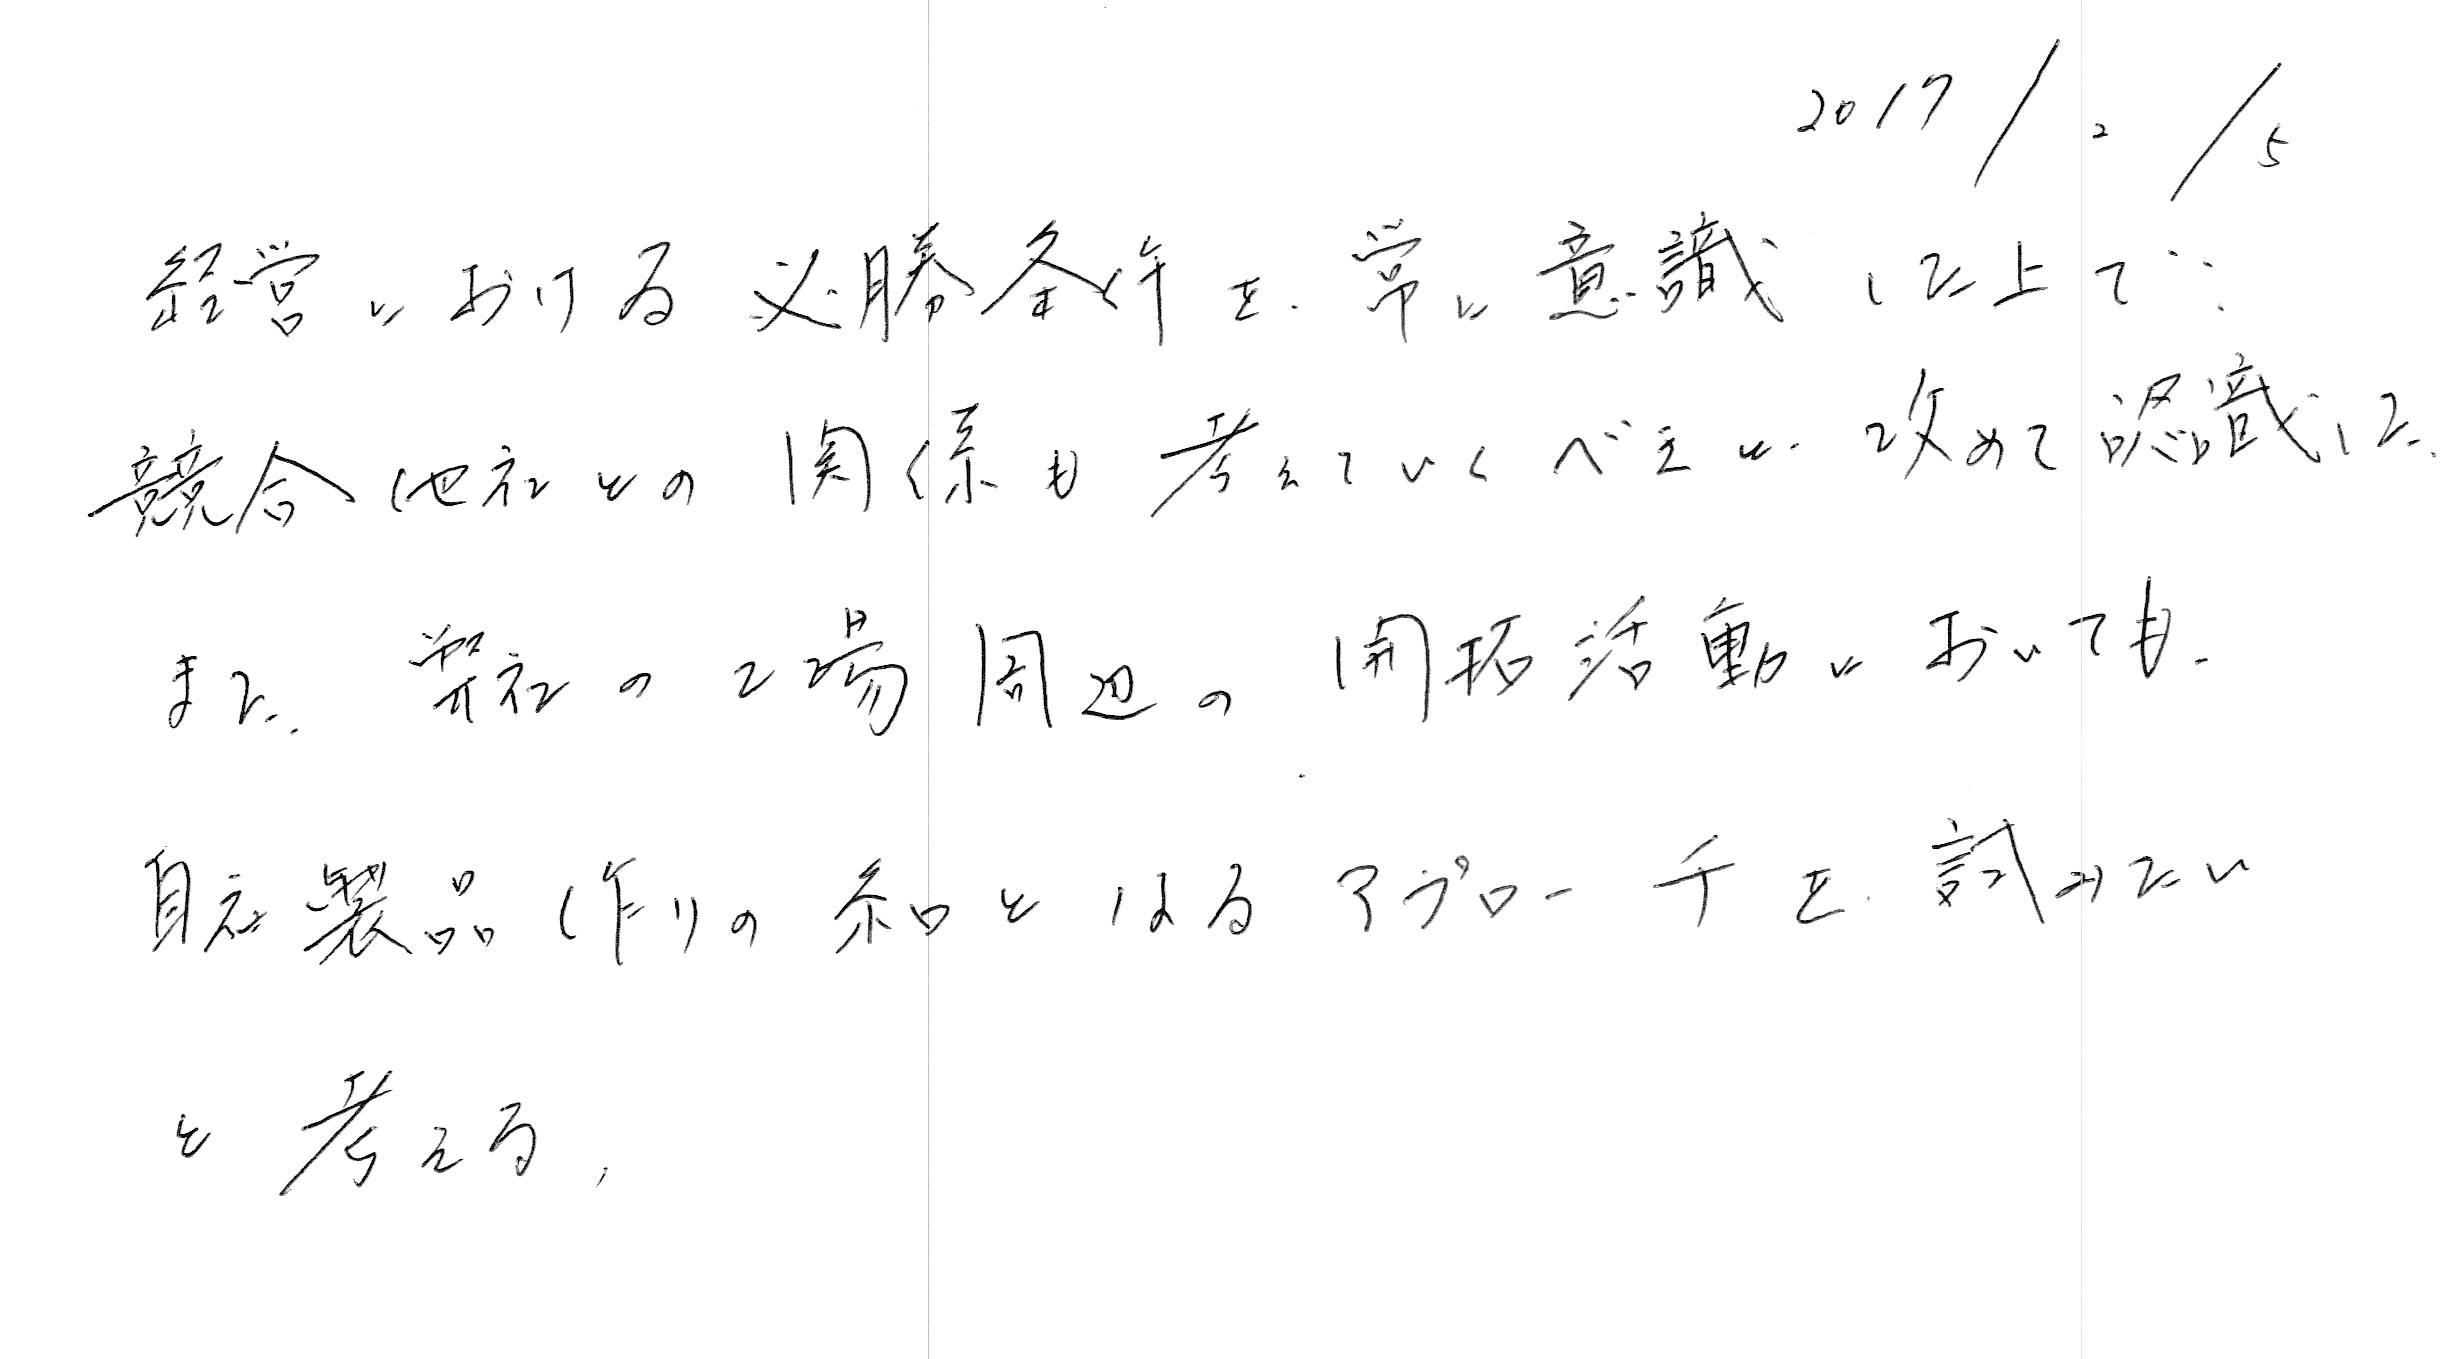 2017/2/5
経営における必勝条件を、常に意識した上で、
競合他社との関係も考えていくべきと、改めて認識した。
また、弊社の工場周辺の開拓活動においても、
自社製品作りの糸口となるアプローチを、試みたい
と考える。